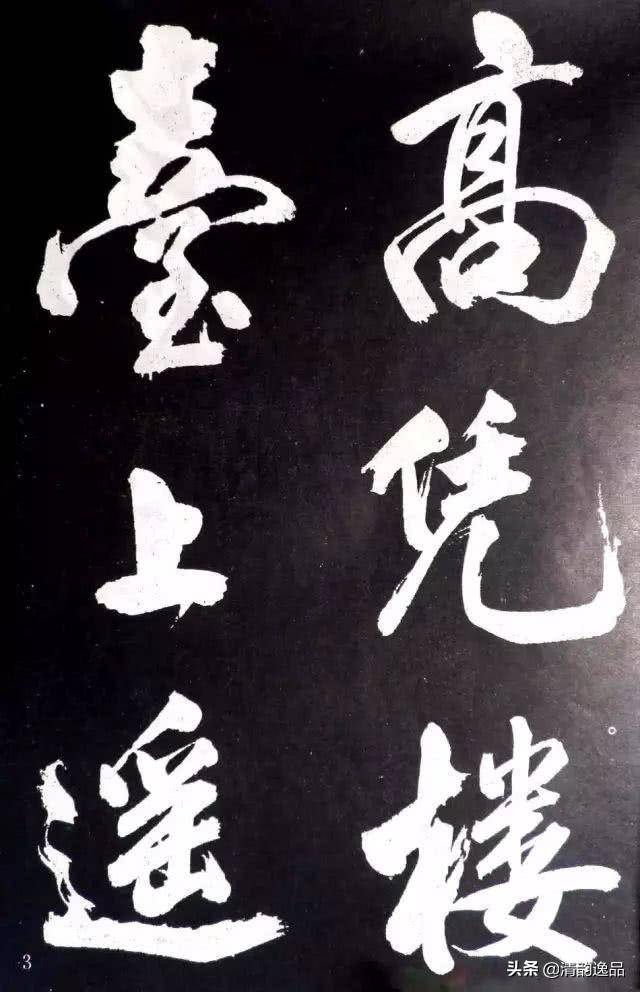 高凭楼
臺上遥
3
头条@清韵逸品